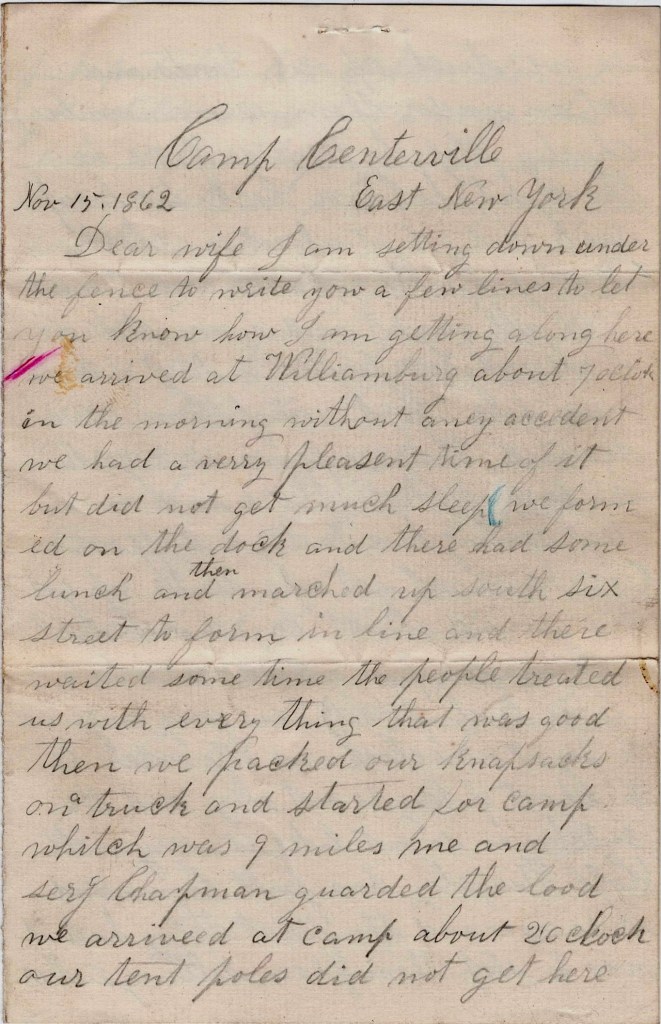 Camp Centerville
Nov 15. 1862 East New York
Dear wife I am setting down under
the fence to write yow a few lines to let
you know how I am getting along here
we arrived at Williamburg about 7 oclok
in the morning without aney accedent
we had a verry pleasent time of it
but did not get much sleep we form
ed on the dock and there had some
lunch and then marched up south six
street to form in line and there
waited some time the people treated
us with every thing that was good
then we packed our knapsacks
on a truck and started for camp
whitch was 9 miles me and
serg Chapman guarded the lood
we arriveed at camp about 2 oclock
our tent poles did not get here